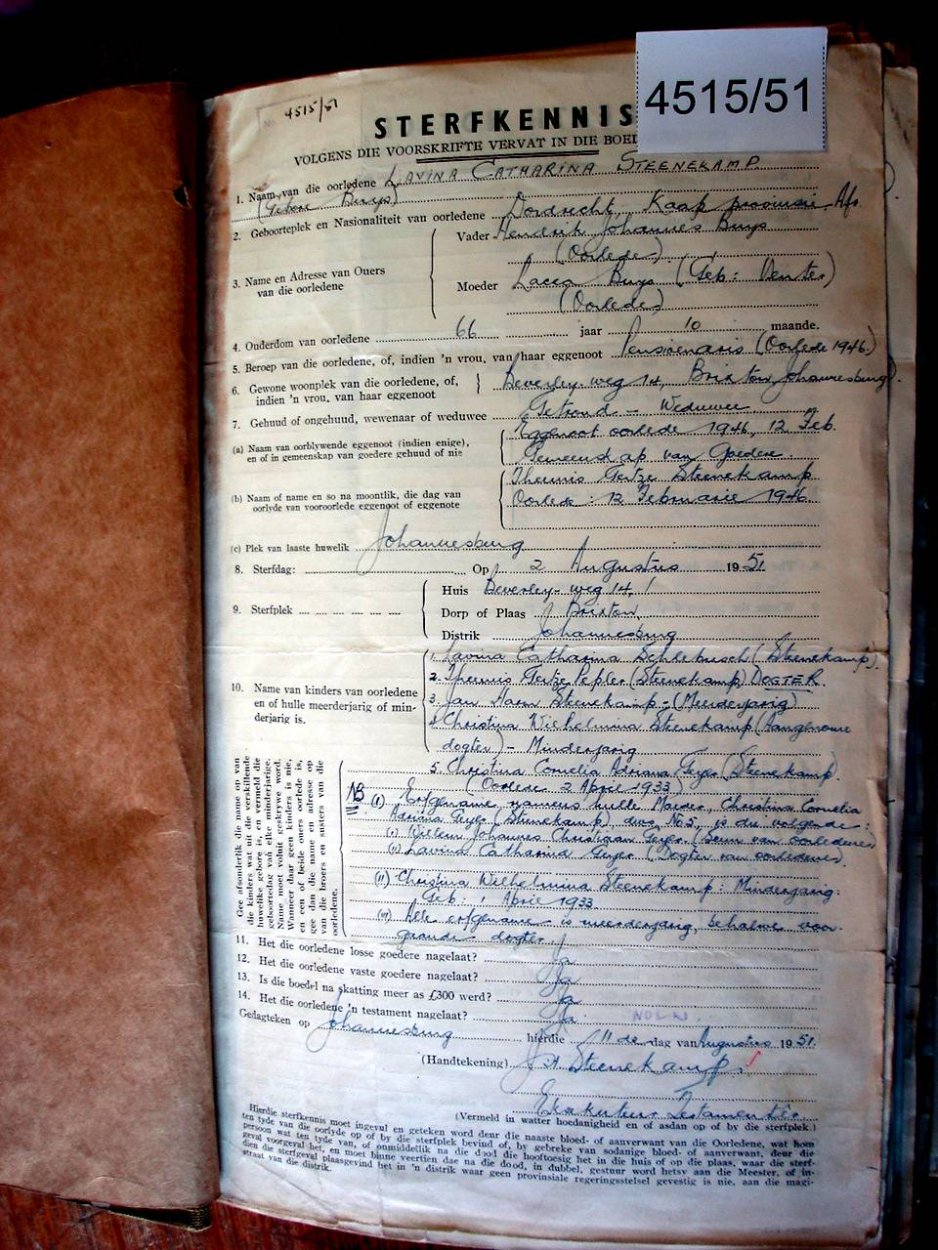 4515/51
4515/51
STERFKENNIS
VOLGENS DIE VOORSKRIFTE VERVAT IN DIE BOED
1. Naam van die oorledene LAVINA CATHARINA STEENEKAMP
(Gebore Buys)
2. Geboorteplek en Nasionaliteit van oorledene Dordrecht, Kaap provinsie. Afr.
3. Name en Adresse van Ouers van die oorledene
Vader Hendrik Johannes Buys
(Oorlede)
Moeder Buys (Geb: Venter)
(Oorlede)
4. Ouderdom van oorledene 66 jaar 10 maande.
5. Beroep van die oorledene, of, indien 'n vrou, van haar eggenoot Pensioenaris (Oorlede 1946.)
6. Gewone woonplek van die oorledene, of, indien 'n vrou, van haar eggenoot
Beverley-weg 14, Brixton, Johannesburg.
7. Gehuud of ongehuud, wewenaar of weduwee Getroud - Weduwee
(a) Naam van oorblywende eggenoot (indien enige), en of in gemeenskap van goedere gehuud of nie
Eggenoot oorlede 1946, 12 Feb.
Gemeenskap van Goedere.
(b) Naam of name en so na moontlik, die dag van oorlyde van vooroorlede eggenoot of eggenote
Theunis Gertze Steenekamp
Oorlede: 12 Februarie 1946
(c) Plek van laaste huwelik Johannesburg
8. Sterfdag: Op 2 Augustus 1951.
9. Sterfplek
Huis Beverley-weg 14,
Dorp of Plaas Brixton
Distrik Johannesburg
10. Name van kinders van oorledene en of hulle meerderjarig of minderjarig is.
1. Lavina Catharina Schlebusch (Steenekamp).
2. Theunis Gertze Pepler (Steenekamp) DOGTER.
3. Jan Steenekamp - (Meerderjarig)
4. Christina Wilhelmina Steenekamp (Aangenome
dogter) - Minderjarig
5. Christina Cornelia Adriana Geyer (Steenekamp).
(Oorlede 2 April 1933)
Gee afsonderlik die name op van
die kinders wat uit die verskillende
huwelike gebore is, en vermeld die
geboortedag van elke minderjarige.
Name moet voluit geskrywe word.
Wanneer daar geen kinders is nie,
en een of beide ouers oorlede is,
gee dan die name en adresse op
van die broers en susters van die
oorledene.
NB (I) Erfgename, namens hulle Moeder, Christina Cornelia
Adriana Geyer (Steenekamp), dus No 5, is die volgende:
(i) Willem Johannes Christiaan Geyer (Seun van oorledene)
(ii) Lavina Catharina Geyer (Dogter van oorledene).
(II) Christina Wilhelmina Steenekamp: Minderjarig.
Geb: 1 April 1933
(III) Alle erfgename is meerderjarig, behalwe voor-
dogter.
11. Het die oorledene losse goedere nagelaat? Ja
12. Het die oorledene vaste goedere nagelaat? Ja
13. Is die boedel na skatting meer as £300 werd? Ja
14. Het die oorledene 'n testament nagelaat? Ja
Gedagteken op Johannesburg hierdie 11 de dag van Augustus 1951.
(Handtekening) J.H. Steenekamp.
Eksekuteur Testamentêr
(Vermeld in watter hoedanigheid en of asdan op of by die sterfplek.)
Hierdie sterfkennis moet ingevul en geteken word deur die naaste bloed- of aanverwant van die Oorledene, wat hom
ten tyde van die oorlyde op of by die sterfplek bevind of, by gebreke van sodanige bloed- of aanverwant, deur die
persoon wat ten tyde van, of onmiddellik na die dood die hooftoesig het in die huis of op die plaas, waar die sterf-
geval voorgeval het, en moet binne veertien dae na die dood, in dubbel, gestuur word hetsy aan die Meester, of in-
dien die sterfgeval plaasgevind het in 'n distrik waar geen provinsiale regeringsstelsel gevestig is nie, aan die magi-
straat van die distrik.